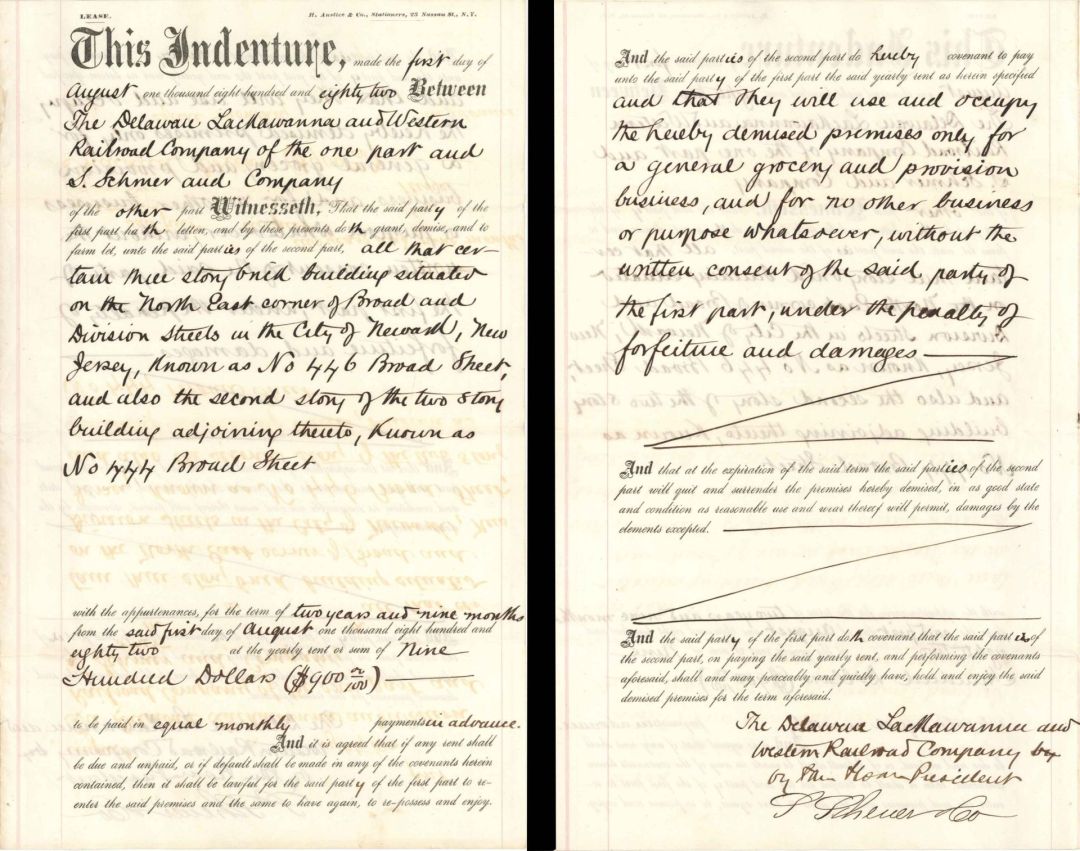 LEASE.
H. Austice & Co., Stationers, 23 Nassau St., N. Y.
This Indenture, made the first day of
August one thousand eight hundred and eighty two Between
The Delaware Lackawanna and Western
Railroad Company of the one part and
S. Schuer and Company
of the other part Witnesseth, That the said party of the
first part hath letten, and by these presents doth grant, demise, and to
farm let, unto the said parties of the second part, all that cer-
tain three story brick building situated
on the North East corner of Broad and
Division Streets in the City of Newark, New
Jersey, Known as No 446 Broad Street,
and also the second story of the two story
building adjoining thereto, Known as
No 444 Broad Street
with the appurtenances, for the term of two years and nine months
from the said first day of August one thousand eight hundred and
eighty two at the yearly rent or sum of Nine
Hundred Dollars ($900 0/100)
to be paid in equal monthly payments in advance.
And it is agreed that if any rent shall
be due and unpaid, or if default shall be made in any of the covenants herein
contained, then it shall be lawful for the said party of the first part to re-
enter the said premises and the same to have again, to re-possess and enjoy.
And the said parties of the second part do hereby covenant to pay
unto the said party of the first part the said yearly rent as herein specified
and that they will use and occupy
the hereby demised premises only for
a general grocery and provision
business, and for no other business
or purpose whatsoever, without the
written consent of the said party of
the first part, under the penalty of
forfeiture and damages
And that at the expiration of the said term the said parties of the second
part will quit and surrender the premises hereby demised, in as good state
and condition as reasonable use and wear thereof will permit, damages by the
elements excepted.
And the said party of the first part doth covenant that the said parties of
the second part, on paying the said yearly rent, and performing the covenants
aforesaid, shall and may peaceably and quietly have, hold and enjoy the said
demised premises for the term aforesaid.
The Delaware Lackawanna and
Western Railroad Company by
by President
S Scheuer & Co